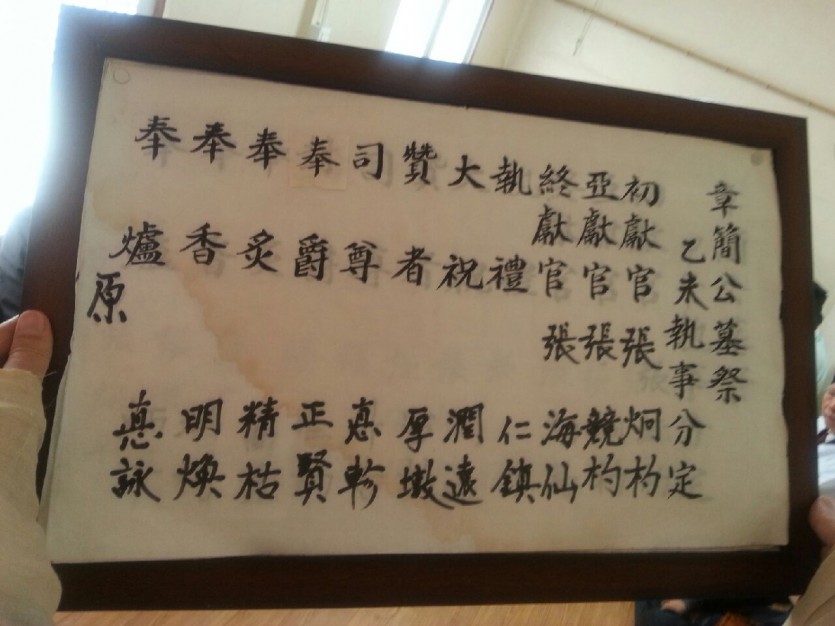 章簡公墓祭
乙未執事分定
初獻官 張炯杓
亞獻官 張競杓
終獻官 張海仙
執禮 仁鎮
大祝 潤遠
贊者 厚墩
司尊 惪軫
奉爵 正賢
奉炙 精祜
奉香 明煥
奉爐 惪詠
原